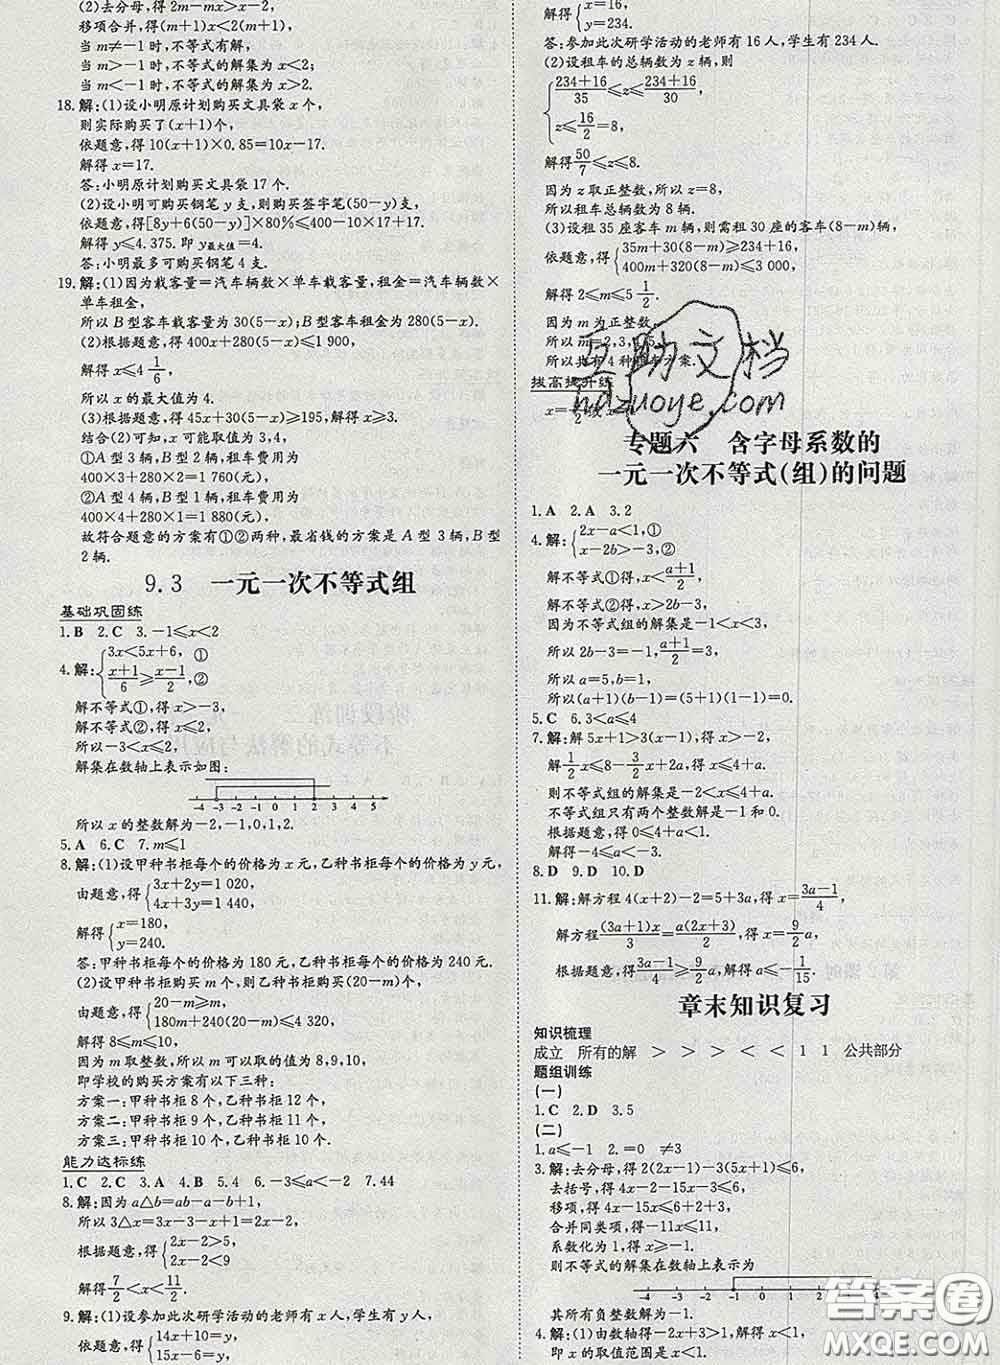 (2)去分母,得2m-mx>x-2,
移项合并,得(m+1)x<2(m+1),
当m≠-1时,不等式有解,
当m>-1时,不等式的解集为x<2;
当m<-1时,不等式的解集为x>2.
18.解:(1)设小明原计划购买文具袋x个,
则实际购买了(x+1)个,
依题意,得10(x+1)×0.85=10x-17.
解得x=17.
答:小明原计划购买文具袋17个.
(2)设小明可购买钢笔y支,则购买签字笔(50-y)支,
依题意,得[8y+6(50-y)]×80%≤400-10×17+17.
解得y≤4.375.即y最大值=4.
答:小明最多可购买钢笔4支.
19.解:(1)因为载客量=汽车辆数×单车载客量,租金=汽车辆数×
单车租金,
所以B型客车载客量为30(5-x);B型客车租金为280(5-x);
(2)根据题意,得400x+280(5-x)≤1 900,
解得x≤4 1/6,
所以x的最大值为4.
(3)根据题意,得45x+30(5-x)≥195,解得x≥3.
结合(2)可知,x可能取值为3,4,
①A型3辆,B型2辆,租车费用为
400×3+280×2=1 760(元),
②A型4辆,B型1辆,租车费用为
400×4+280×1=1 880(元),
故符合题意的方案有①②两种,最省钱的方案是A型3辆,B型
2辆.
9.3 一元一次不等式组
基础巩固练
1.B 2.C 3.-1≤x<2
4.解:{3x<5x+6,①
(x+1)/6≥(x-1)/2,②
解不等式①,得x>-3,
解不等式②,得x≤2,
所以-3<x≤2,
解集在数轴上表示如图:
-4 -3 -2 -1 0 1 2 3 4 5
所以x的整数解为-2,-1,0,1,2.
5.A 6.C 7.m≤1
8.解:(1)设甲种书柜每个的价格为x元,乙种书柜每个的价格为y元,
由题意,得{3x+2y=1 020,
4x+3y=1 440,
解得{x=180,
y=240.
答:甲种书柜每个的价格为180元,乙种书柜每个的价格为240元.
(2)设甲种书柜购买m个,则乙种书柜购买(20-m)个,
由题意,得{20-m≥m,
180m+240(20-m)≤4 320,
解得8≤m≤10,
因为m取整数,所以m可以取的值为8,9,10,
即学校的购买方案有以下三种:
方案一:甲种书柜8个,乙种书柜12个,
方案二:甲种书柜9个,乙种书柜11个,
方案三:甲种书柜10个,乙种书柜10个.
能力达标练
1.C 2.C 3.A 4.B 5.4 6.-3≤a<-2 7.44
8.解:因为a△b=ab-a-b+1,
所以3△x=3x-3-x+1=2x-2,
根据题意,得{2x-2>5,
2x-2<9
解得7/2<x<11/2.
9.解:(1)设参加此次研学活动的老师有x人,学生有y人,
依题意,得{14x+10=y,
15x-6=y,
解得{x=16,
y=234.
答:参加此次研学活动的老师有16人,学生有234人.
(2)设租车的总辆数为z辆,则
{(234+16)/35≤z≤(234+16)/30,
z≤16/2=8,
解得50/7≤z≤8,
因为z取正整数,所以z=8,
所以租车总辆数为8辆.
(3)设租35座客车m辆,则需租30座的客车(8-m)辆,
依题意,得{35m+30(8-m)≥234+16,
400m+320(8-m)≤3 000,
解得2≤m≤5 1/2.
因为m为正整数,
所以m=2,3,4,5,
所以共有4种租车方案.
拔高提升练
专题六 含字母系数的
一元一次不等式(组)的问题
1.A 2.A 3.2
4.解:{2x-a<1,①
x-2b>-3,②
解不等式①得,x<(a+1)/2,
解不等式②得,x>2b-3,
因为不等式组的解集是-1<x<3,
所以2b-3=-1,(a+1)/2=3,
所以a=5,b=1,
所以(a+1)(b-1)=(5+1)(1-1)=0.
5.C 6.3<a≤4
7.解:解5x+1>3(x-1),得x>-2,
解1/2x≤8-3/2x+2a,得x≤4+a.
则不等式组的解集是-2<x≤4+a.
不等式组只有两个整数解是-1和0.
根据题意,得0≤4+a<1.
解得-4≤a<-3.
8.D 9.D 10.D
11.解:解方程4(x+2)-2=5+3a,得x=(3a-1)/4,
解方程(3a+1)x/3=a(2x+3)/2,得x=9/2a,
根据题意,得(3a-1)/4≥9/2a,解得a≤-1/15.
章末知识复习
知识梳理
成立 所有的解 > > > < < 1 1 公共部分
题组训练
(一)
1.C 2.D 3.5
(二)
1.a≤-1 2.=0 ≠3
3.解:去分母,得2(2x-1)-3(5x+1)≤6,
去括号,得4x-2-15x-3≤6,
移项,得4x-15x≤6+2+3,
合并同类项,得-11x≤11,
系数化为1,得x≥-1.
则不等式的解集在数轴上表示为
-4 -3 -2 -1 0 1 2
其所有负整数解为-1.
4.解:(1)由数轴得-2x+3>1,解得x<1,
即x的取值范围是x<1.
互助文档
hdzuoye.com
答案圈
MXQE.COM